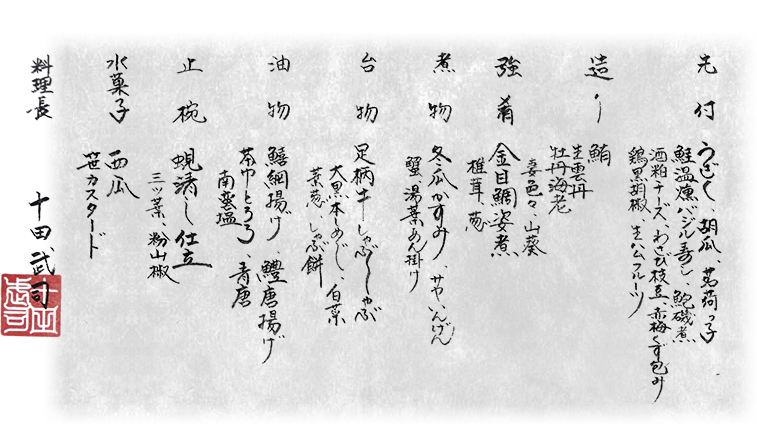 先付
うざく、胡瓜、茗荷っ子
鮭温燻バジル寿し、鮑磯煮
酒粕チーズ、わさび枝豆、赤梅くず包み
鶏黒胡椒、生ハムフルーツ
造り
鮪
生雲丹
牡丹海老
妻色々、山葵
強肴
金目鯛姿煮
椎茸、葱
煮物
冬瓜かすみ サヤいんげん
蟹、湯葉あん掛け
台物
足柄牛しゃぶしゃぶ
大黒本しめじ、白菜
葉葱、しゃぶ餅
油物
鱚網揚げ、鱧唐揚げ
茶巾とろろ、青唐
南蛮塩
止椀
蜆清し仕立
三ッ葉、粉山椒
水菓子
西瓜
笹カスタード
料理長 十田武司